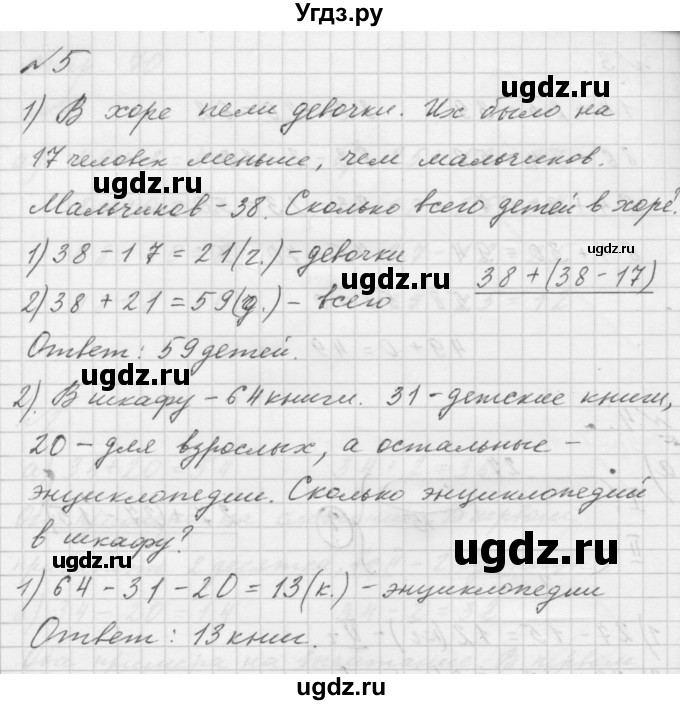 Угдз.ру
№5
1) В хоре пели девочки. Их было на
17 человек меньше, чем мальчиков.
ugdz.ru
Мальчиков - 38. Сколько всего детей в хоре?
1) 38 - 17 = 21(ч.) - девочки
ugdz.ru
ugdz.ru
38 + (38 - 17)
2) 38 + 21 = 59(д.) - всего
ugdz.ru
Ответ: 59 детей.
ugdz.ru
2). В шкафу - 64 книги. 31 - детские книги,
20 - для взрослых, а остальные -
энциклопедии. Сколько энциклопедий
в шкафу?
ugdz.ru
ugdz.ru
1) 64 - 31 - 20 = 13(к.) - энциклопедии
Ответ: 13 книг.
ugdz.ru
ugdz.ru